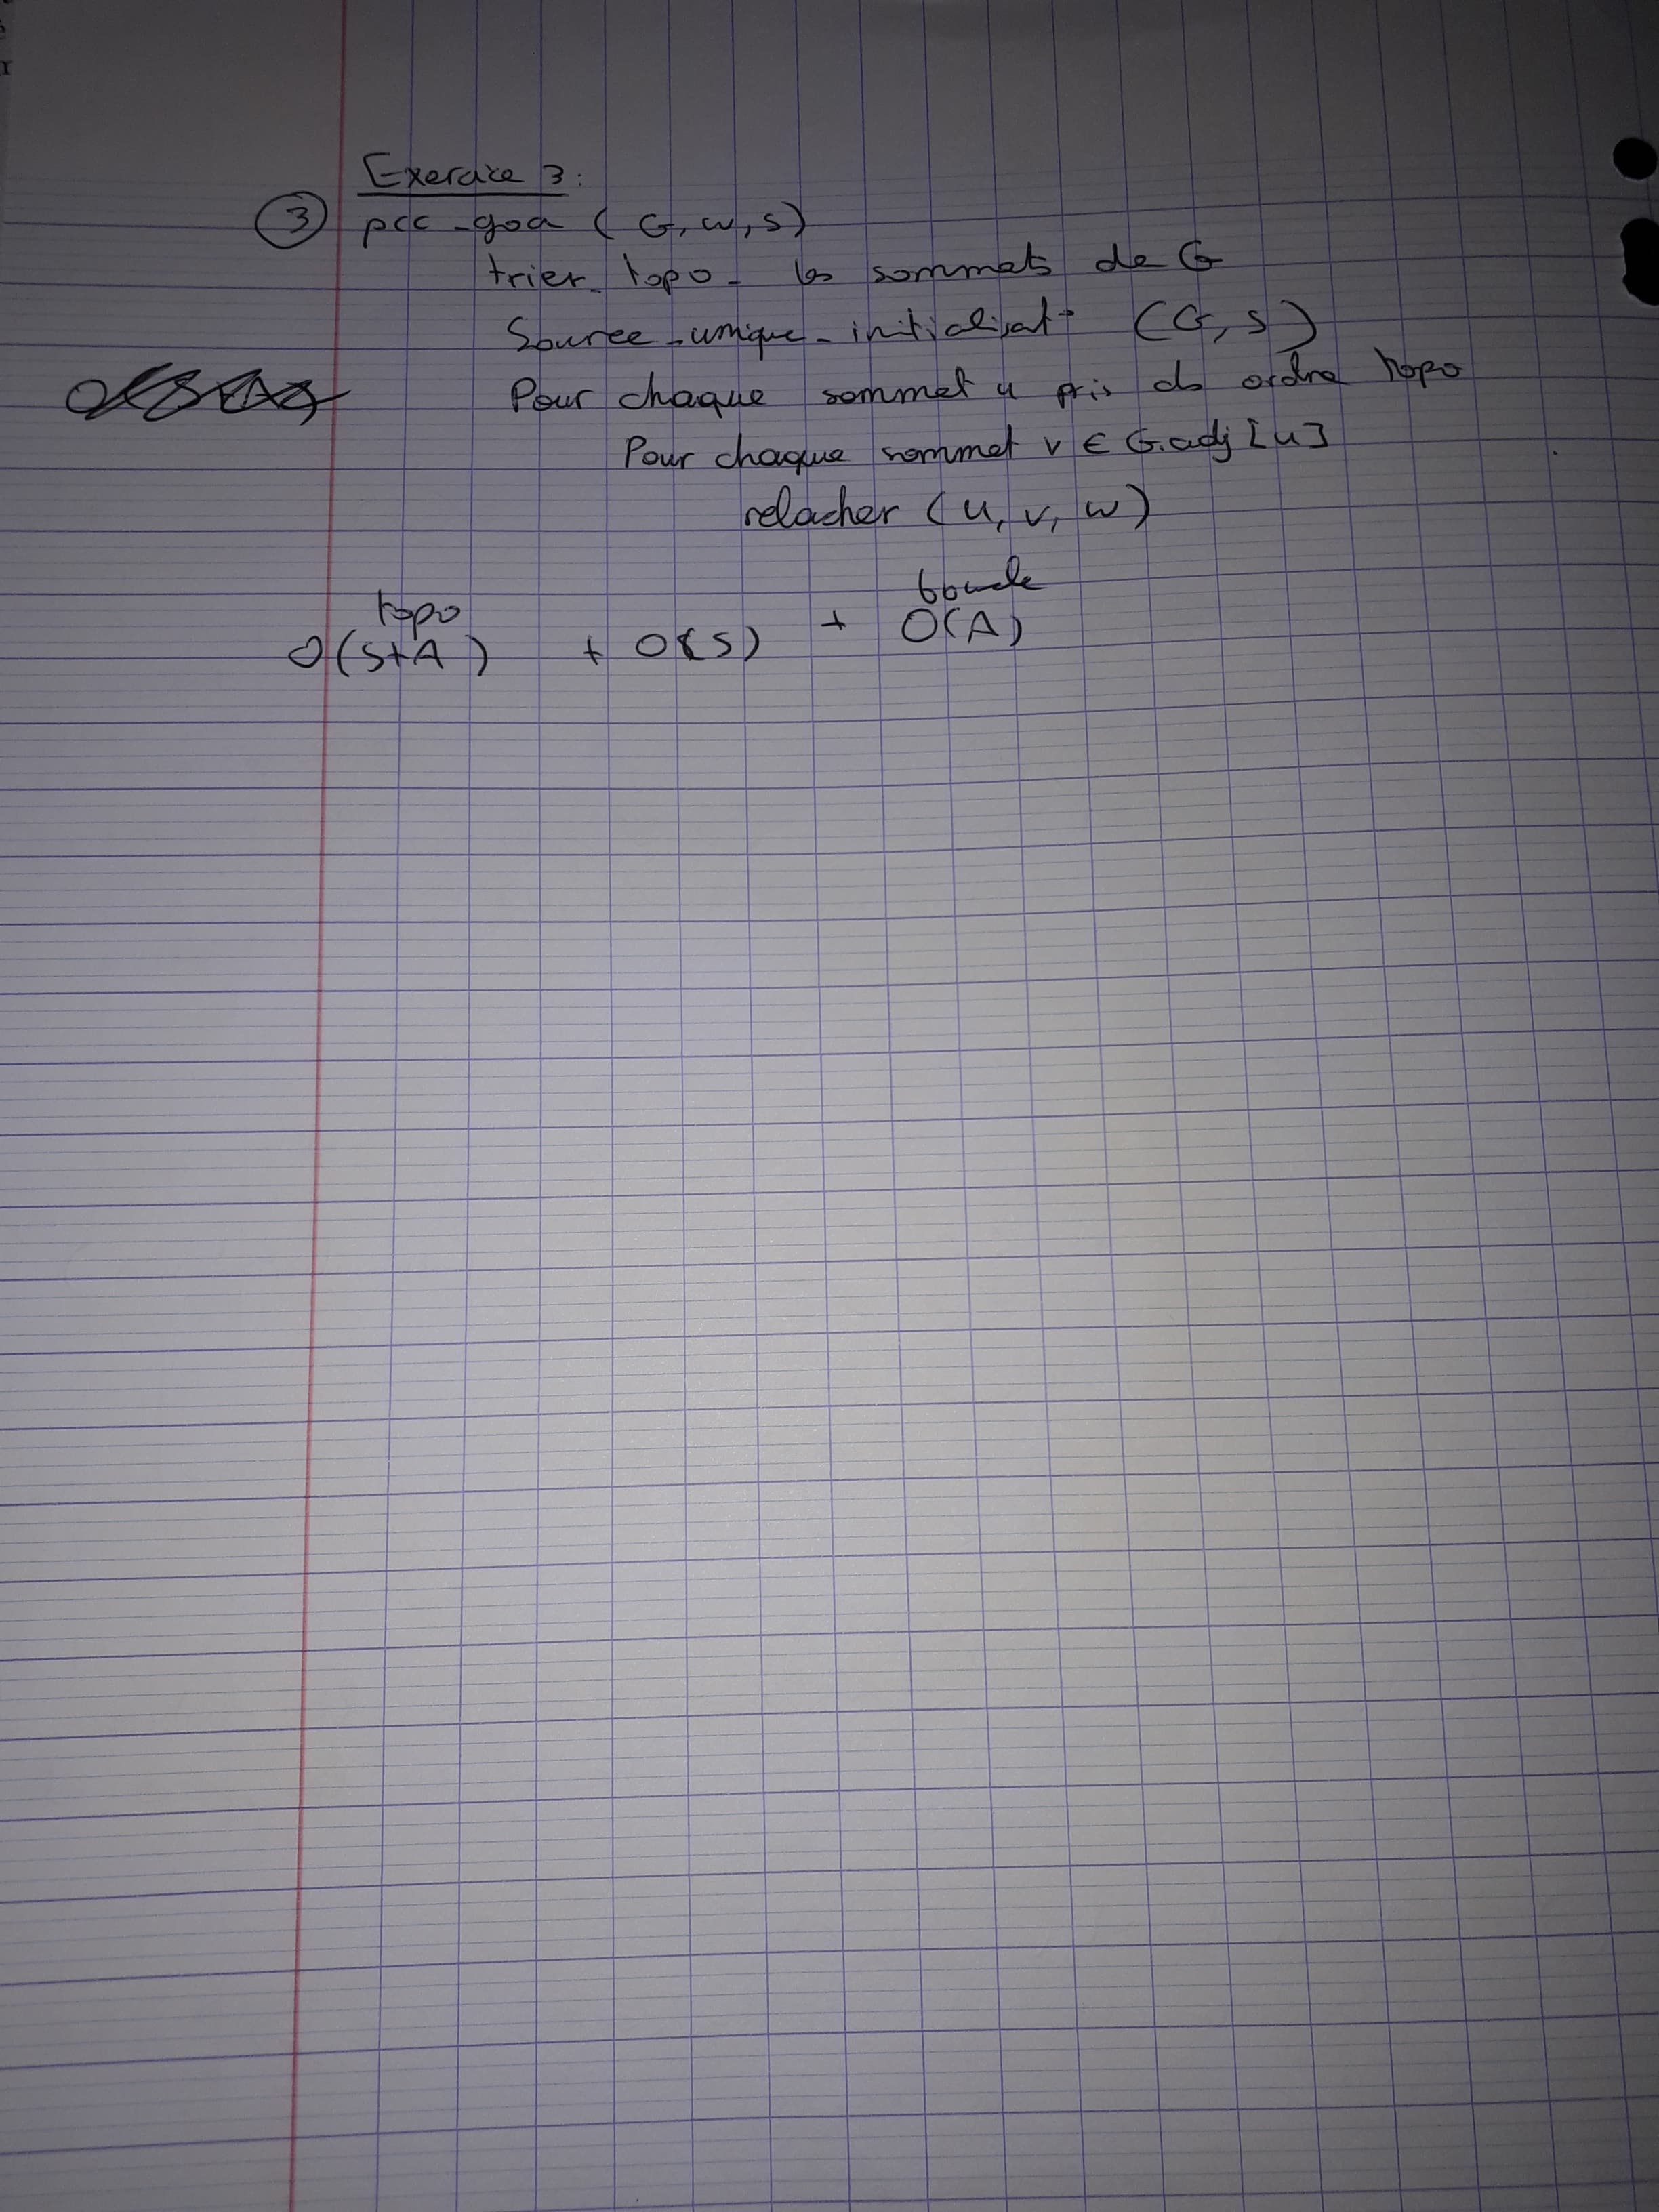 Exercice 3:
③ pcc-goa (G, w, s)
trier topo les sommets de G
Source-unique-initialisat° (G, s)
Pour chaque sommet u pris ds ordre topo
Pour chaque sommet v ∈ G.adj[u]
relacher (u, v, w)
topo boucle
O(S+A) + O(S) + O(A)